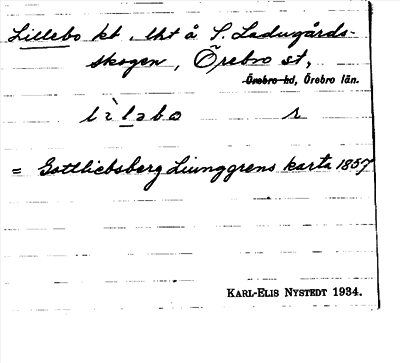 Lillebo kt, lht å S. Ladugårds-
skogen, Örebro st,
Örebro hd, Örebro län.
lìləbo r
= Gottliebsberg Ljunggrens karta 1857
KARL-ELIS NYSTEDT 1934.